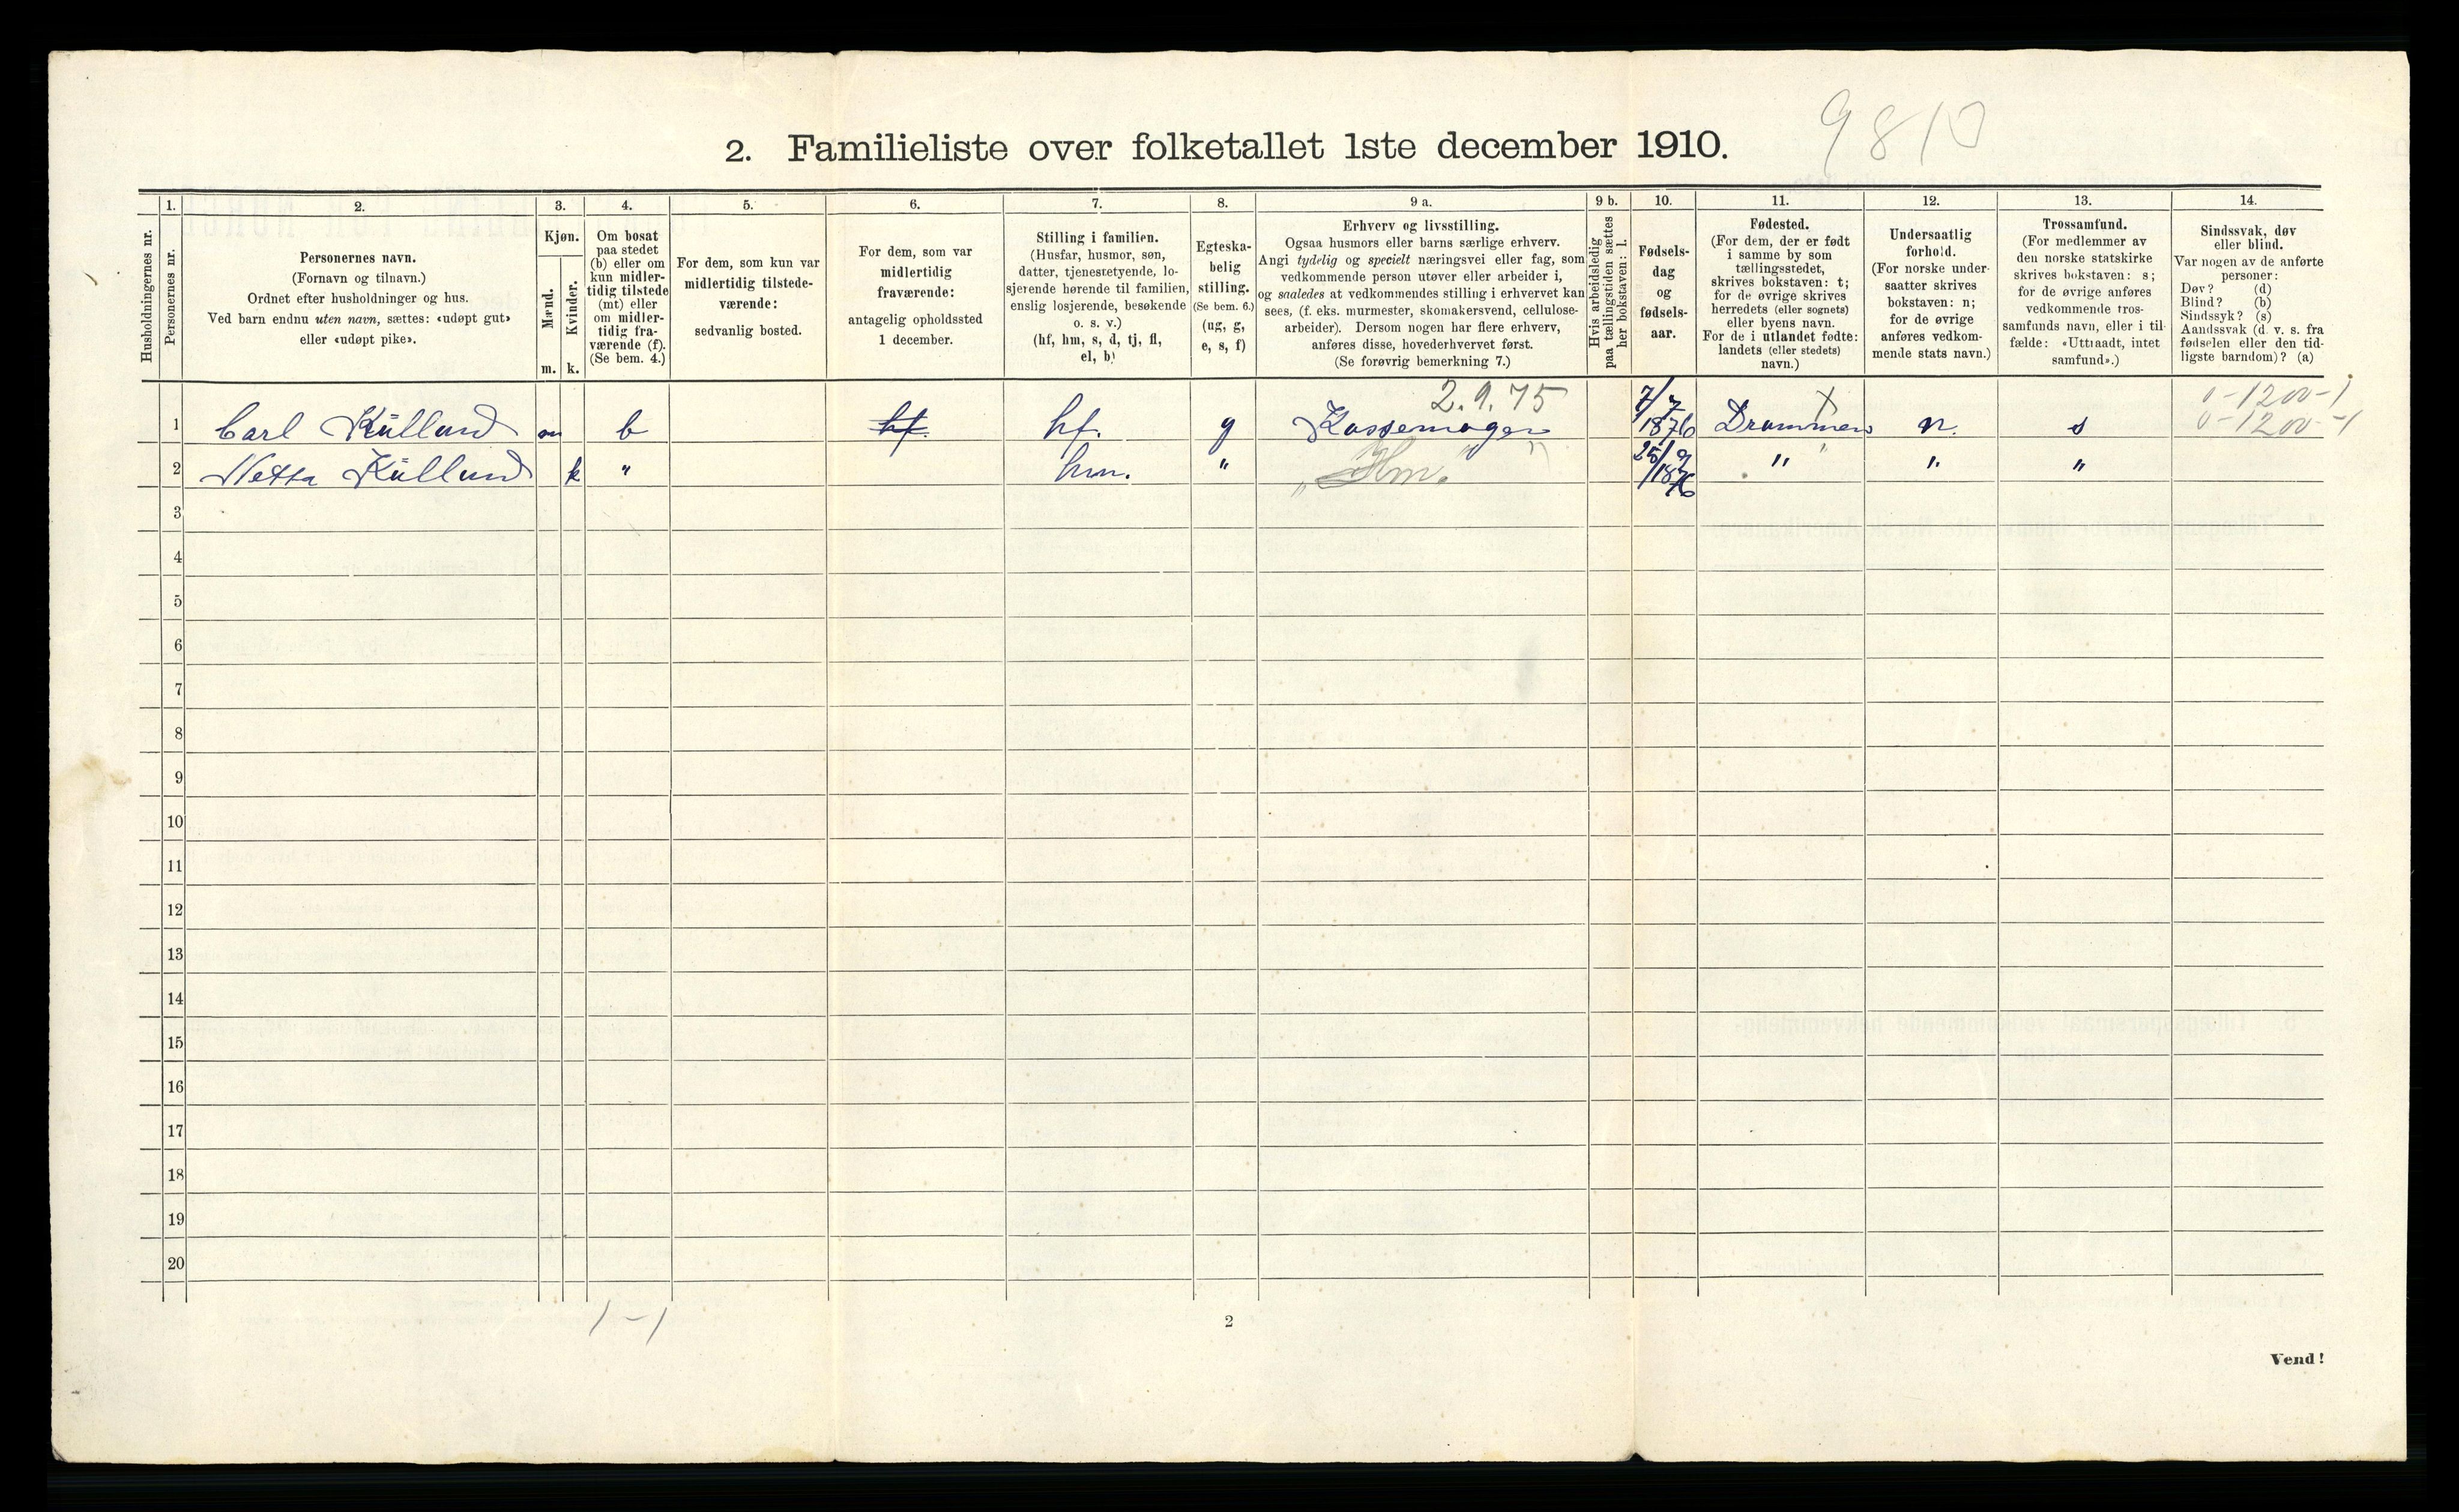 2. Familieliste over folketallet 1ste december 1910.
9810
Husholdningernes nr.
1.
Personernes nr.
2.
Personernes navn.
(Fornavn og tilnavn.)
Ordnet efter husholdninger og hus.
Ved barn endnu uten navn, sættes: «udøpt gut»
eller «udøpt pike».
3.
Kjøn.
Mænd.
Kvinder.
m. k.
4.
Om bosat
paa stedet
(b) eller om
kun midler-
tidig tilstede
(mt) eller
om midler-
tidig fra-
værende (f).
(Se bem. 4.)
5.
For dem, som kun var
midlertidig tilstede-
værende:
sedvanlig bosted.
6.
For dem, som var
midlertidig
fraværende:
antagelig opholdssted
1 december.
7.
Stilling i familien.
(Husfar, husmor, søn,
datter, tjenestetyende, lo-
sjerende hørende til familien,
enslig losjerende, besøkende
o. s. v.)
(hf, hm, s, d, tj, fl,
el, b)
8.
Egteska-
belig
stilling.
(Se bem. 6.)
(ug, g,
e, s, f)
9 a.
Erhverv og livsstilling.
Ogsaa husmors eller barns særlige erhverv.
Angi tydelig og specielt næringsvei eller fag, som
vedkommende person utøver eller arbeider i,
og saaledes at vedkommendes stilling i erhvervet kan
sees, (f. eks. murmester, skomakersvend, cellulose-
arbeider). Dersom nogen har flere erhverv,
anføres disse, hovederhvervet først.
(Se forøvrig bemerkning 7.)
9 b.
Hvis arbeidsledig
paa tællingstiden sættes
her bokstaven: l.
10.
Fødsels-
dag
og
fødsels-
aar.
11.
Fødested.
(For dem, der er født
i samme by som
tællingsstedet,
skrives bokstaven: t;
for de øvrige skrives
herredets (eller sognets)
eller byens navn.
For de i utlandet fødte:
landets (eller stedets)
navn.)
12.
Undersaatlig
forhold.
(For norske under-
saatter skrives
bokstaven: n;
for de øvrige
anføres vedkom-
mende stats navn.)
13.
Trossamfund.
(For medlemmer av
den norske statskirke
skrives bokstaven: s;
for de øvrige anføres
vedkommende tros-
samfunds navn, eller i til-
fælde: «Uttraadt, intet
samfund».)
14.
Sindssvak, døv
eller blind.
Var nogen av de anførte
personer:
Døv? (d)
Blind? (b)
Sindssyk? (s)
Aandssvak (d. v. s. fra
fødselen eller den tid-
ligste barndom)? (a)
2.9.75 X 0-1200-1
1 Carl Küllund m b hf. hf. g Kassemager 7/7 1876 Drammen n. s 0-1200-1
2 Netta Küllund k " hm. " " Hm. " " 25/9 1876 " " "
3
4
5
6
7
8
9
10
11
12
13
14
15
16
17
18
19
20
1-1
2
Vend!